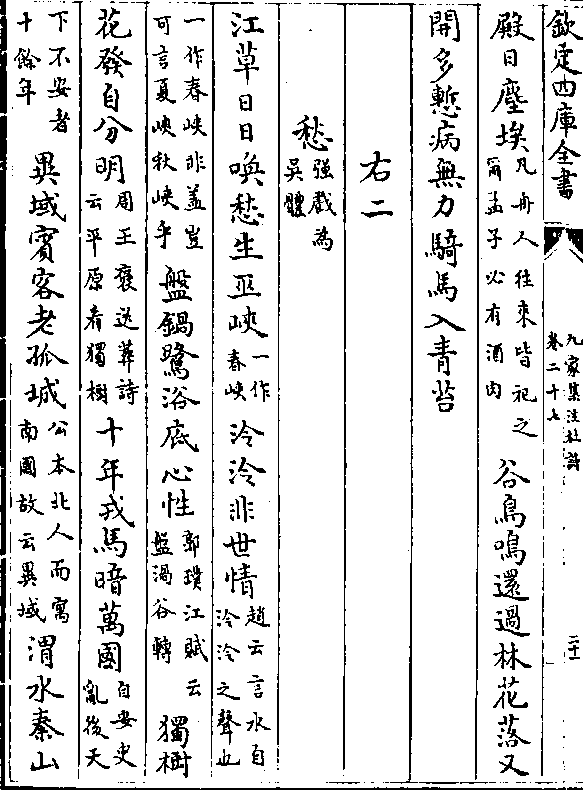 欽定四庫全書
九家集注杜詩
卷二十七
二十
殿日塵埃凡舟人往來皆祀之
甯孟子必有酒肉谷鳥鳴還過林花落又
開多慙病無力騎馬入青苔
右二
愁强戯為
吳體
江草日日喚愁生巫峽一作
春峽泠泠非世情趙云言水自
泠泠之聲也
一作春峽非盖豈
可言夏峽秋峽乎盤鍋鷺浴底心性郭璞江賦云
盤渦谷轉獨樹
花發自分明周王襃送葬詩
云平原看獨樹十年戎馬暗萬國自安史
亂後天
下不安者
十餘年異域賓客老孤城公本北人而寓
南國故云異域渭水秦山